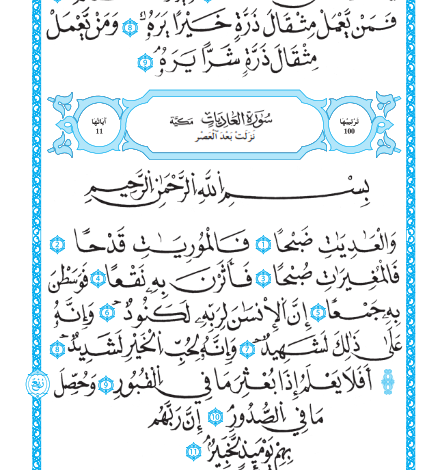 فَمَنْ تَعْمَلْ مِثْقَالَ ذَرَّةٍ خَيْرًا يَرَهُۥ ۝8 وَمَنْ تَعْمَلْ
مِثْقَالَ ذَرَّةٍ شَرًّا يَرَهُۥ ۝9
ترتيبها 100 سُورَةُ الْعَادِيَاتِ مَكِيَّة آياتها 11
نَزَلَتْ بَعْدَ الْعَصْر
بِسْمِ اللَّهِ الرَّحْمَٰنِ الرَّحِيمِ
وَالْعَٰدِيَٰتِ ضَبْحًا ۝1 فَالْمُورِيَٰتِ قَدْحًا ۝2
فَالْمُغِيرَٰتِ صُبْحًا ۝3 فَأَثَرْنَ بِهِۦ نَقْعًا ۝4 فَوَسَطْنَ
بِهِۦ جَمْعًا ۝5 إِنَّ الْإِنسَٰنَ لِرَبِّهِۦ لَكَنُودٌ ۝6 وَإِنَّهُۥ
عَلَىٰ ذَٰلِكَ لَشَهِيدٌ ۝7 وَإِنَّهُۥ لِحُبِّ الْخَيْرِ لَشَدِيدٌ ۝8
أَفَلَا يَعْلَمُ إِذَا بُعْثِرَ مَا فِي الْقُبُورِ ۝9 وَحُصِّلَ
مَا فِي الصُّدُورِ ۝10 إِنَّ رَبَّهُم
بِهِمْ يَوْمَئِذٍ لَّخَبِيرٌ ۝11